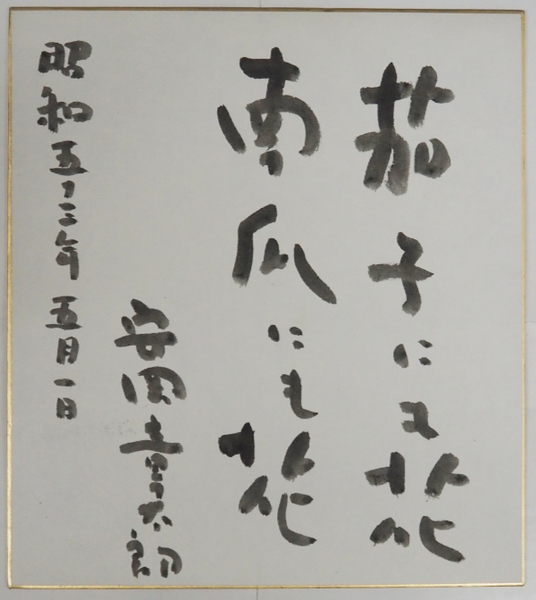 茄子にも花
南瓜にも花
安岡章太郎
昭和五十三年五月一日